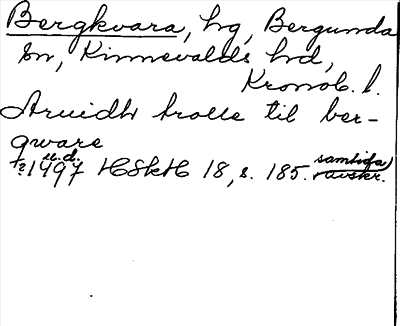 Bergkvara, hg, Bergunda
sn, Kinnevalds hd,
Kronob. l.
Aruidh trolle til ber-
qware
u.d.
[?1497 HSkH 18, s. 185. samtida
avskr.